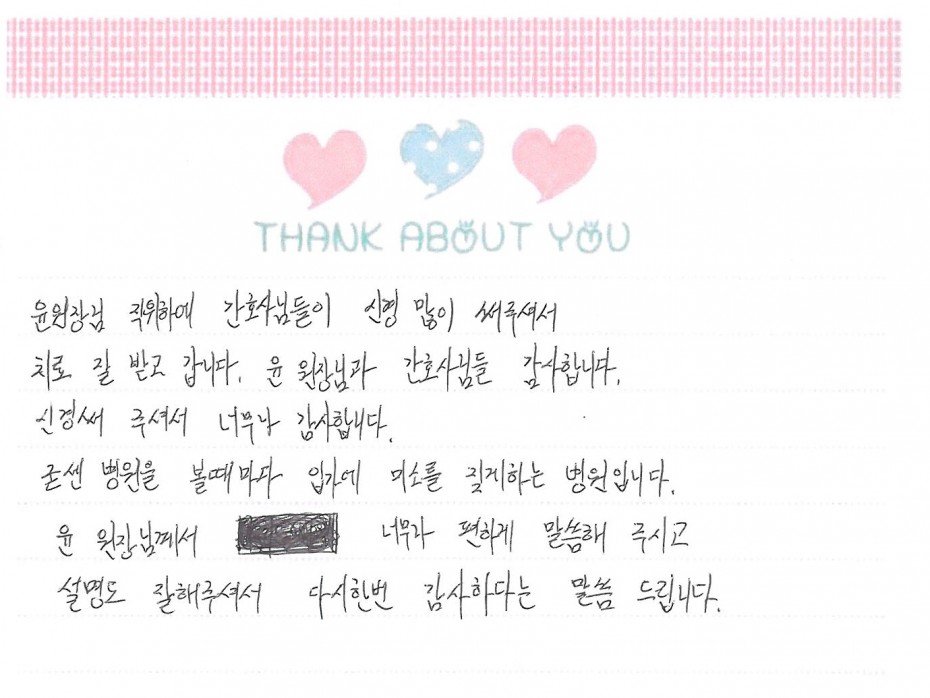 THANK ABOUT YOU
윤원장님 직위하에 간호사님들이 신경 많이 써주셔서
치료 잘 받고 갑니다. 윤 원장님과 간호사님들 감사합니다.
신경써 주셔서 너무나 감사합니다.
굳센 병원을 볼때마다 입가에 미소를 짖게하는 병원입니다.
윤 원장님께서 너무나 편하게 말씀해 주시고
설명도 잘해주셔서 다시한번 감사하다는 말씀 드립니다.